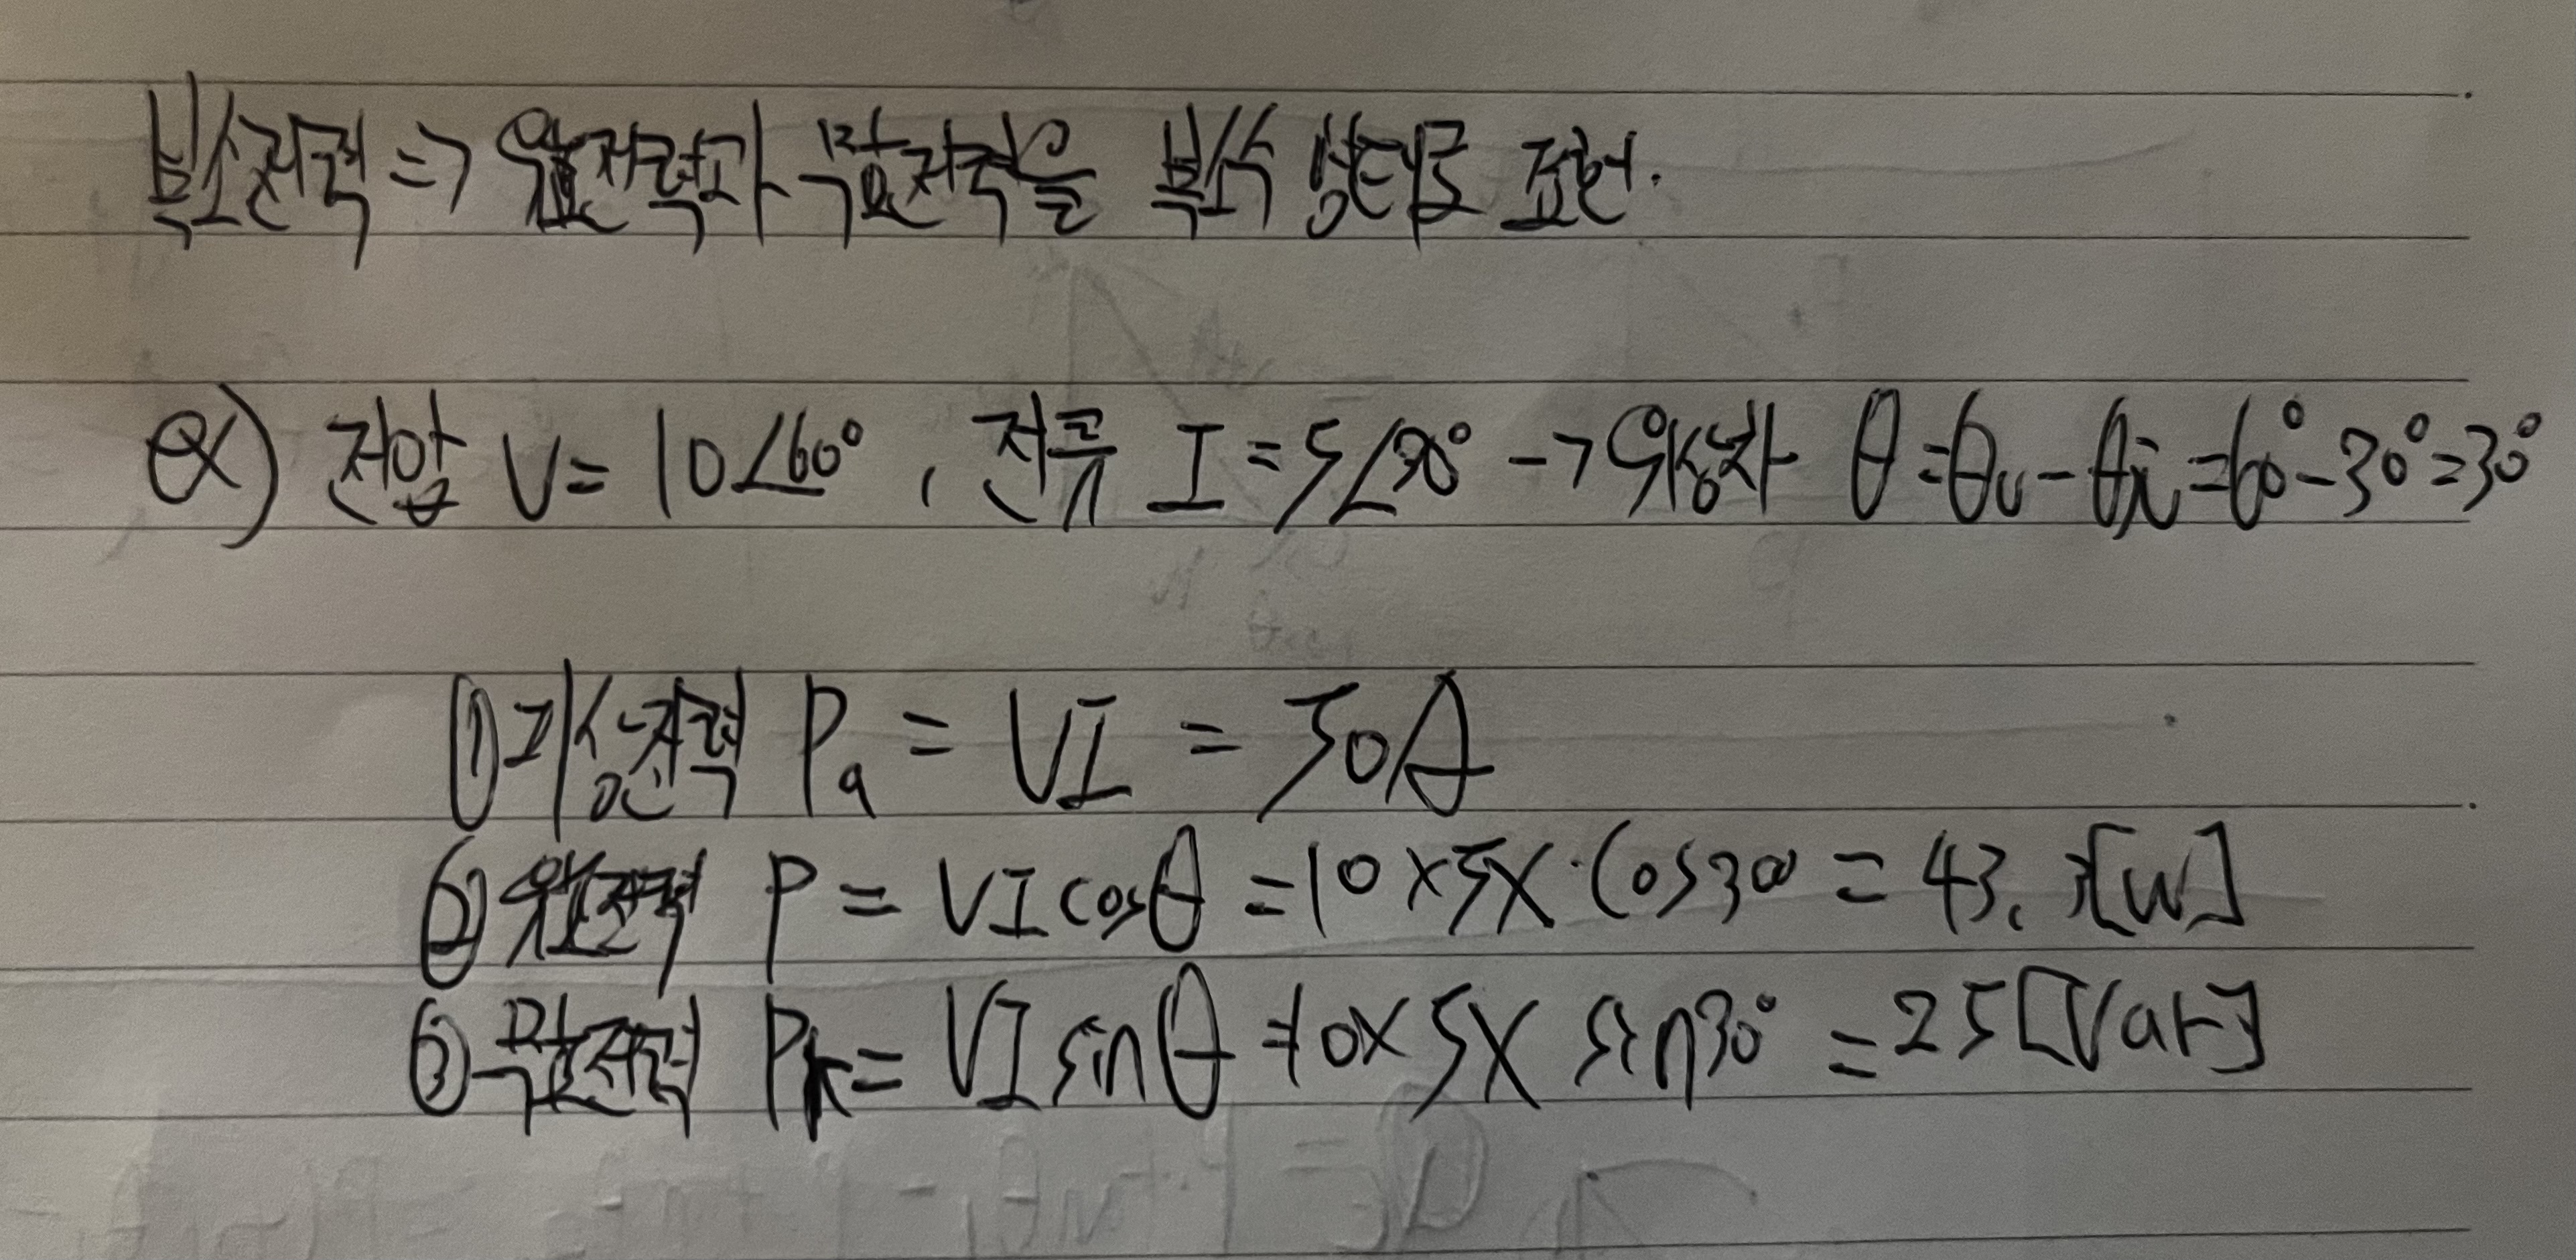 복소전력 => 유효전력과 무효전력을 복소 형태로 표현.
ex) 전압 V = 10∠60°, 전류 I = 5∠30° -> 위상차 θ = θv - θi = 60° - 30° = 30°
① 피상전력 Pa = VI = 50A
② 유효전력 P = VI cosθ = 10 x 5 x cos30° = 43.3[W]
③ 무효전력 Pr = VI sinθ = 10 x 5 x sin30° = 25[Var]